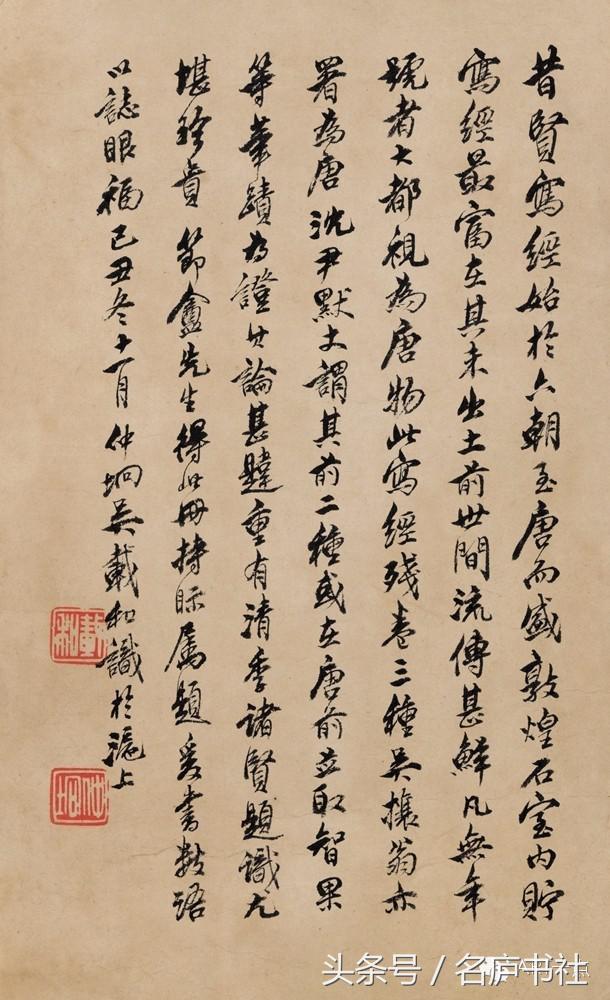 昔賢寫經始於六朝至唐而盛敦煌石室內貯
寫經最富在其未出土前世間流傳甚鮮凡無年
號者大都視為唐物此寫經殘卷三種吳攘翁亦
署為唐沈尹默丈謂其前二種或在唐前並取智果
等筆蹟為證其論甚韙重有清季諸賢題識尤
堪珍貴節盦先生得此冊持眎属題爰書數語
以誌眼福己丑冬十一月仲坰吳載和識於滬上
載和
仲坰
头条号/名庐书社